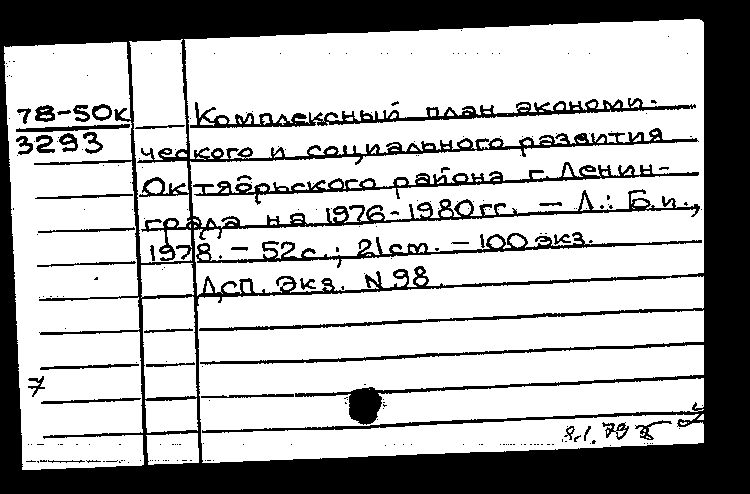 78-50к Комплексный план экономи-
3293 ческого и социального развития
Октябрьского района г. Ленин-
града на 1976-1980гг. — Л.: Б.и.,
1978. — 52с.; 21см. — 100 экз.
Дсп. Экз. N 98.
7
8.1.79